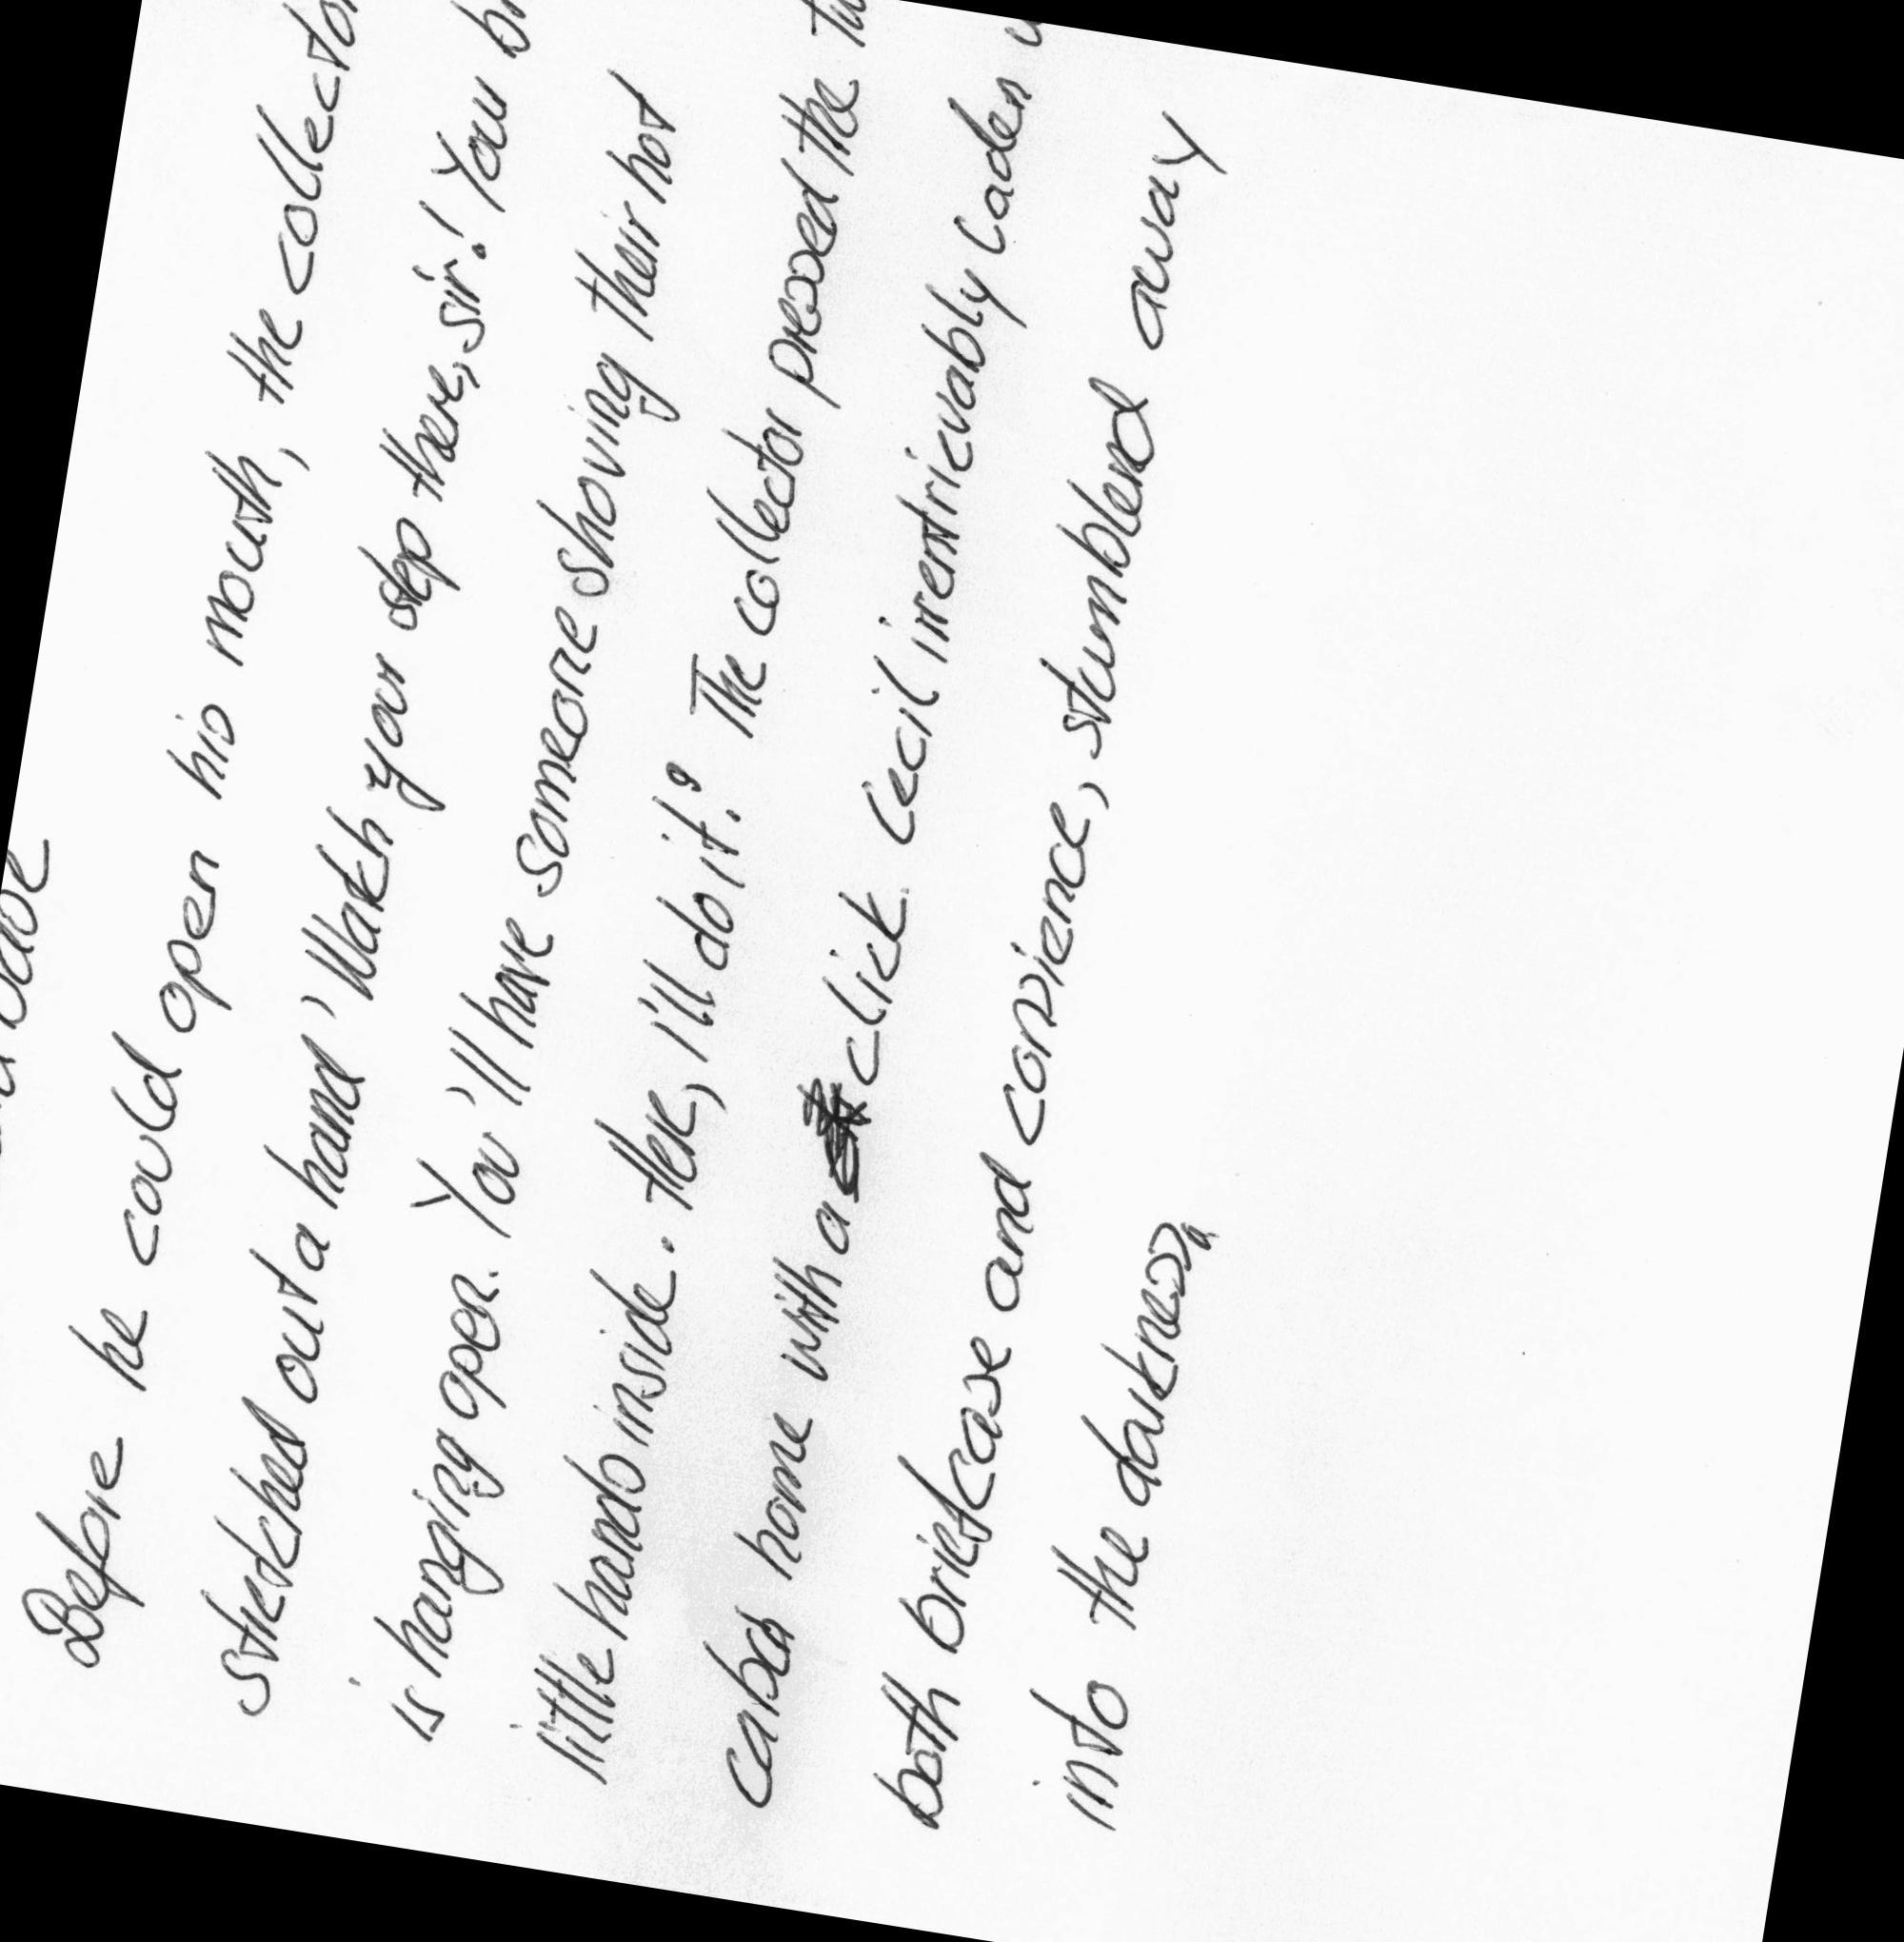 Before he could open his mouth, the collector
stretched out a hand 'Watch your step there, sir! Your
is hanging open. You'll have someone shoving their hot
little hands inside. Here, I'll do it!' The collector pressed the
catch home with a click. Cecil irrentrievably laden
both briefcase and consience, stumblend away
into the darkness.